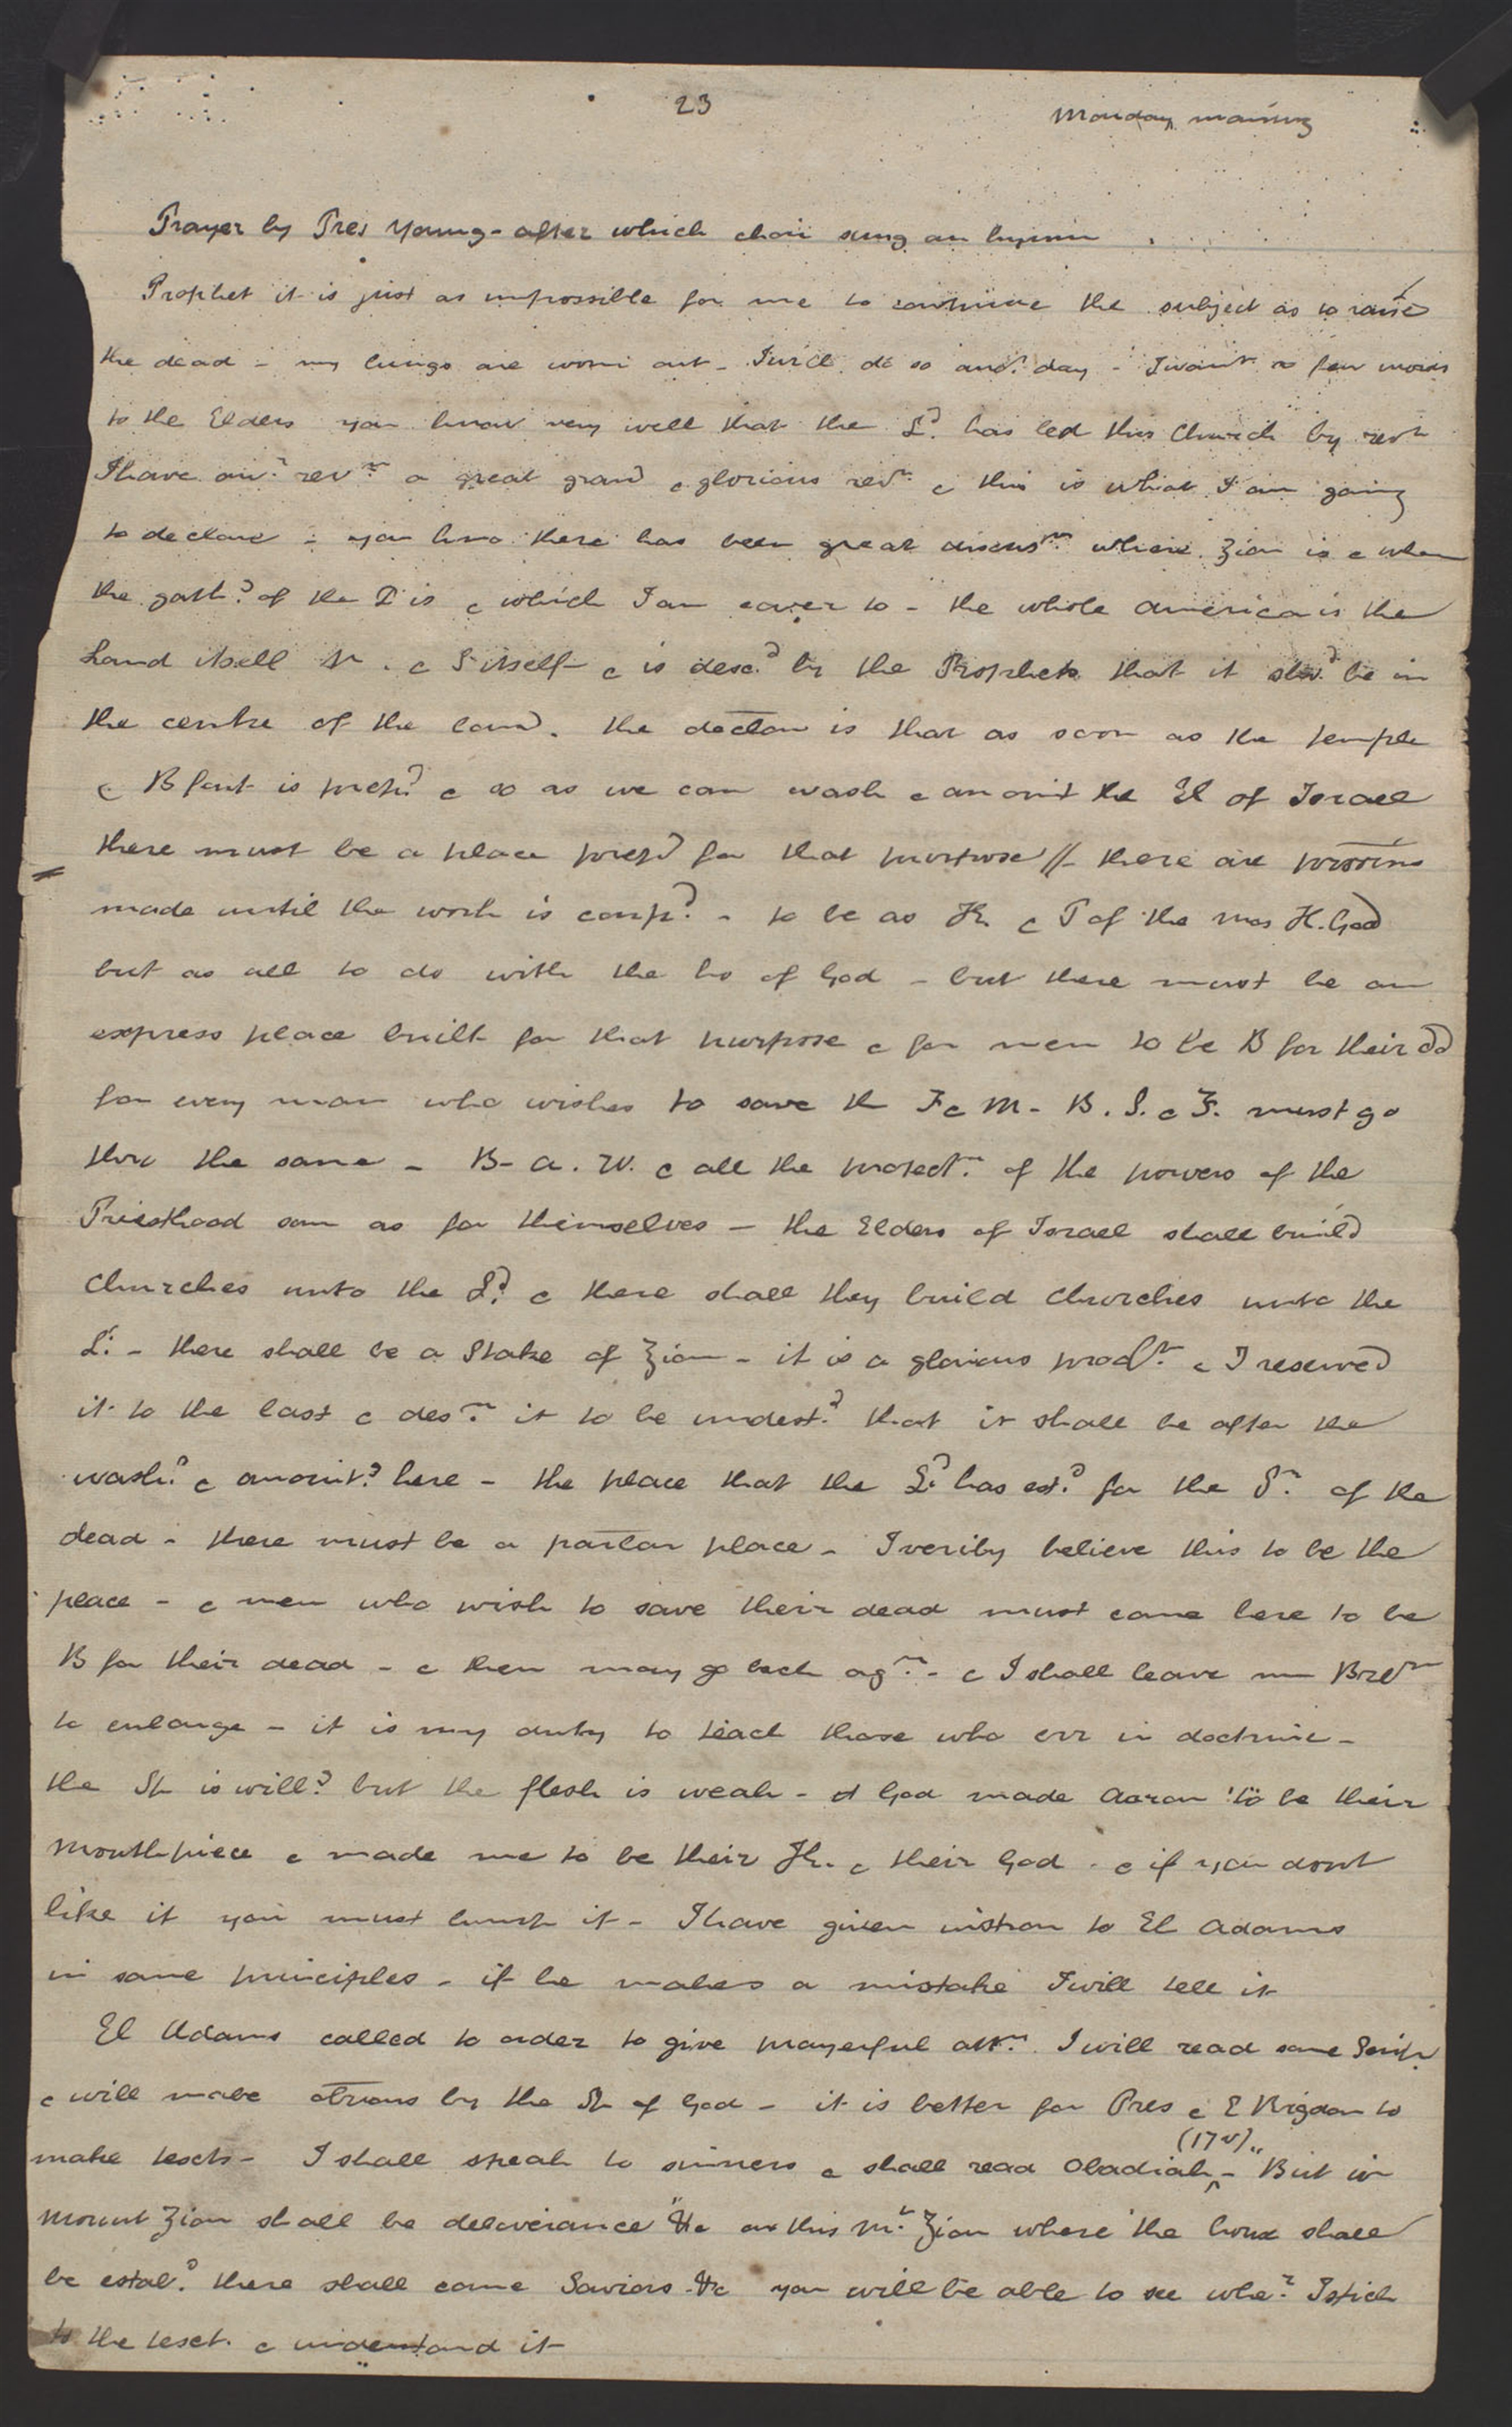 23
Monday morning
Prayer by Pres Young - after which choir sung an hymn
Prophet it is just as impossible for me to continue the subject as to raise
the dead - my lungs are worn out - I will do so anoʳ day - I want a few words
to the Elders you know very well that the Lᵈ. has led this Church by revn
I have anʳ revⁿ a great grand & glorious revⁿ & this is what I am going
to declare - you kno there has been great discusⁿ where Zion is & when
the gathᵍ of the D is & which I am to - the whole America is the
Land itself N. & S itself & is descᵈ by the Prophets that it shoᵈ be in
the centre of the land. the declan is that as soon as the temple
& B font is prepᵈ & so as we can wash & anoint the El of Israel
there must be a place prepd for that purpose // there are provisns
made until the work is compᵈ - to be as K. & P of the mos H. God
but as all to do with the ho of God - but there must be an
express place built for that purpose & for men to be B for their dd
for every man who wishes to save th F & M - B. S. & F. must go
thro the same - B - A. W. & all the protectⁿ of the powers of the
Priesthood sam as for themselves - the Elders of Israel shall build
churches unto the Lᵈ. & there shall they build churches unto the
L. - there shall be a Stake of Zion - it is a glorious proclⁿ & I reserved
it to the last & desⁿ it to be undestᵈ that it shall be after the
washᵍ & anointᵍ here - the place that the Lᵈ has estᵈ for the Sⁿ of the
dead - there must be a partlar place - I verily believe this to be the
place - & men who wish to save their dead must come here to be
B for their dead - & then may go back agⁿ - & I shall leave my Breⁿ
to enlarge - it is my duty to teach those who err in doctrine -
the Sp is willᵍ but the flesh is weak - God made Aaron to be their
mouthpiece & made me to be their K. & their God - & if you dont
like it you must lump it - I have given instron to El Adams
in some principles - if he makes a mistake I will tell it
El Adams called to order to give prayerful attⁿ. I will read some Scrip
& will make obsrons by the Sp of God - it is better for Pres & E Rigdon to
make texts - I shall speak to sinners & shall read Obadiah (17 v) - "But in
Mount Zion shall be deliverance" &c on this Mᵗ Zion where the house shall
be estabᵈ. there shall come Saviors &c you will be able to see wheʳ I stick
to the text. & understand it